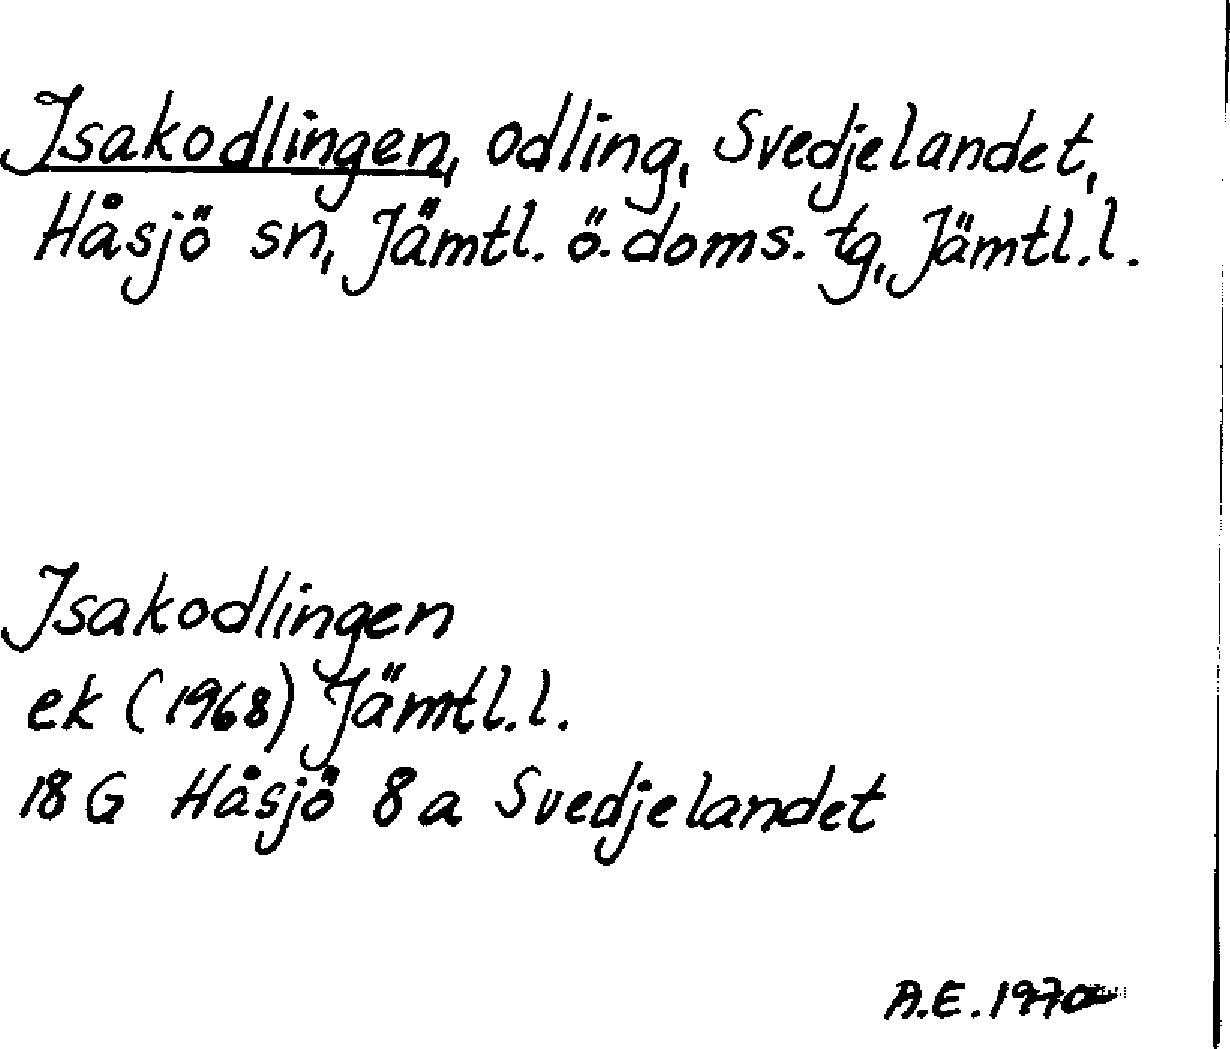 Isakodlingen, odling, Svedjelandet,
Håsjö sn, Jämtl. ö. doms. tg, Jämtl. l.
Isakodlingen
ek (1968) Jämtl. l.
18 G Håsjö 8 a Svedjelandet
A.E. 1970